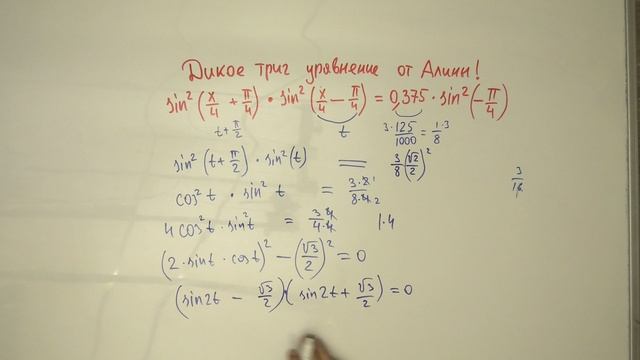 Дикое триг уравнение от Алины!
sin²(x/4 + π/4) · sin²(x/4 − π/4) = 0,375 · sin²(−π/4)
t + π/2 t 3·125/1000 = 1·3/8
sin²(t + π/2) · sin²(t) = 3/8(√2/2)²
cos²t · sin²t = 3·2·1/8·4·2
4cos²t · sin²t = 3·4/4·4 |·4
(2 · sint · cost)² − (√3/2)² = 0
(sin2t − √3/2)·(sin2t + √3/2) = 0